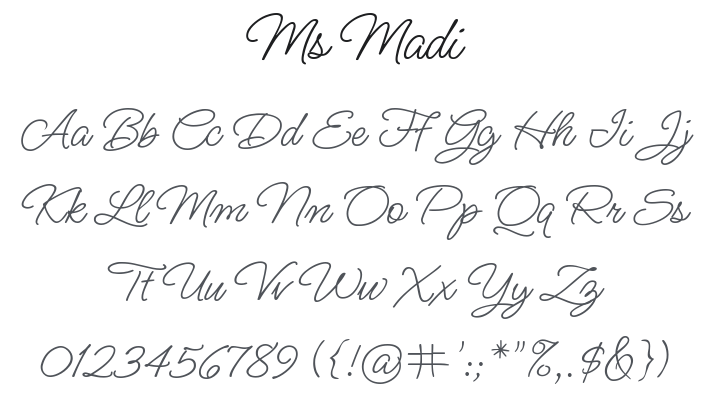 Ms Madi
Aa Bb Cc Dd Ee Ff Gg Hh Ii Jj
Kk Ll Mm Nn Oo Pp Qq Rr Ss
Tt Uu Vv Ww Xx Yy Zz
0123456789 ({!@# ':;*"%,.$&})